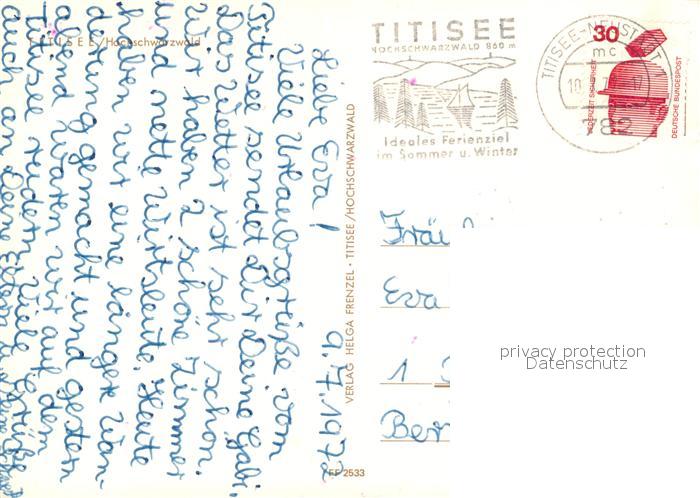 TITISEE/Hochschwarzwald
9.7.1972
Liebe Eva!
Viele Urlaubsgrüße vom
Titisee sendet Dir Deine Gabi.
Das Wetter ist sehr schön.
Wir haben 2 schöne Zimmer
und nette Wirtsleute. Heute
haben wir eine längere Wan-
derung gemacht und gestern
abend waren wir auf dem
Titisee rudern. Viele Grüße
auch an Deine Eltern
VERLAG HELGA FRENZEL · TITISEE/HOCHSCHWARZWALD
FF 2533
TITISEE
HOCHSCHWARZWALD 860 m
Ideales Ferienziel
im Sommer u. Winter
TITISEE-NEUSTADT
mc
782
30
JEDERZEIT SICHERHEIT
DEUTSCHE BUNDESPOST
Fräu
Eva
1
Ber
privacy protection
Datenschutz